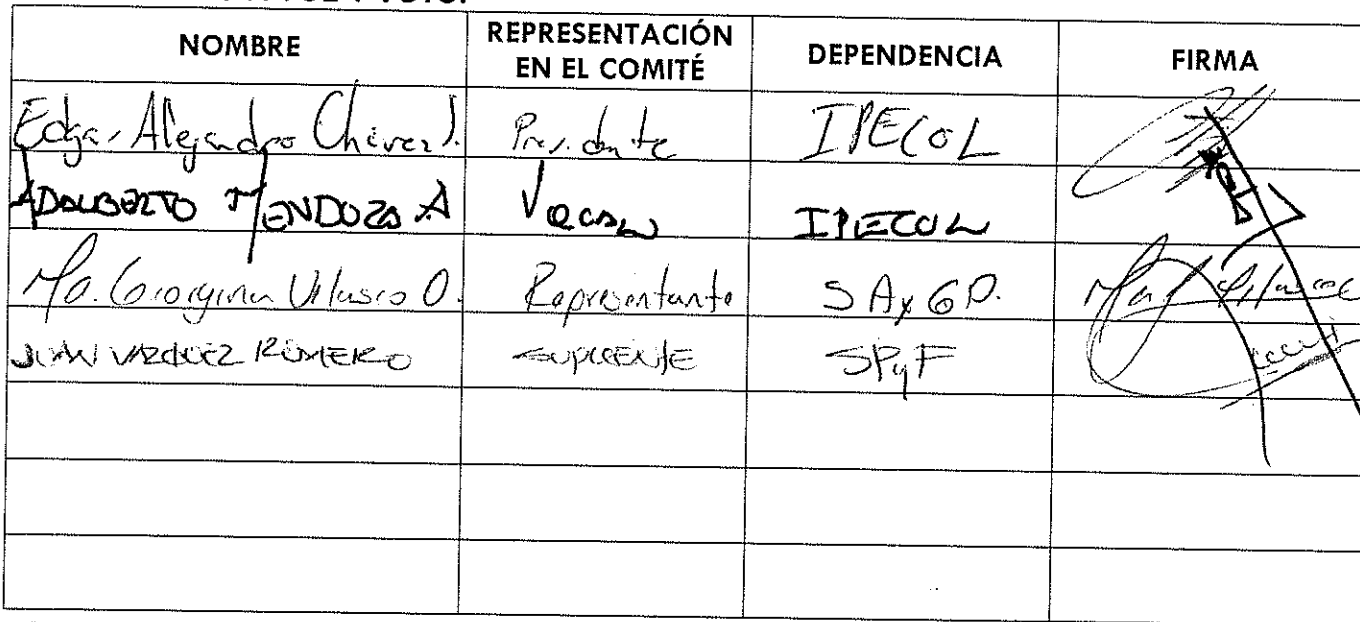 NOMBRE REPRESENTACIÓN EN EL COMITÉ DEPENDENCIA FIRMA
Edgar Alejandro Chávez J. Presidente IPECOL
ADALBERTO MENDOZA A Vocal IPECOL
Ma. Georgina Velasco O. Representante SAyGP.
JUAN VAZQUEZ ROMERO SUPLENTE SPyF